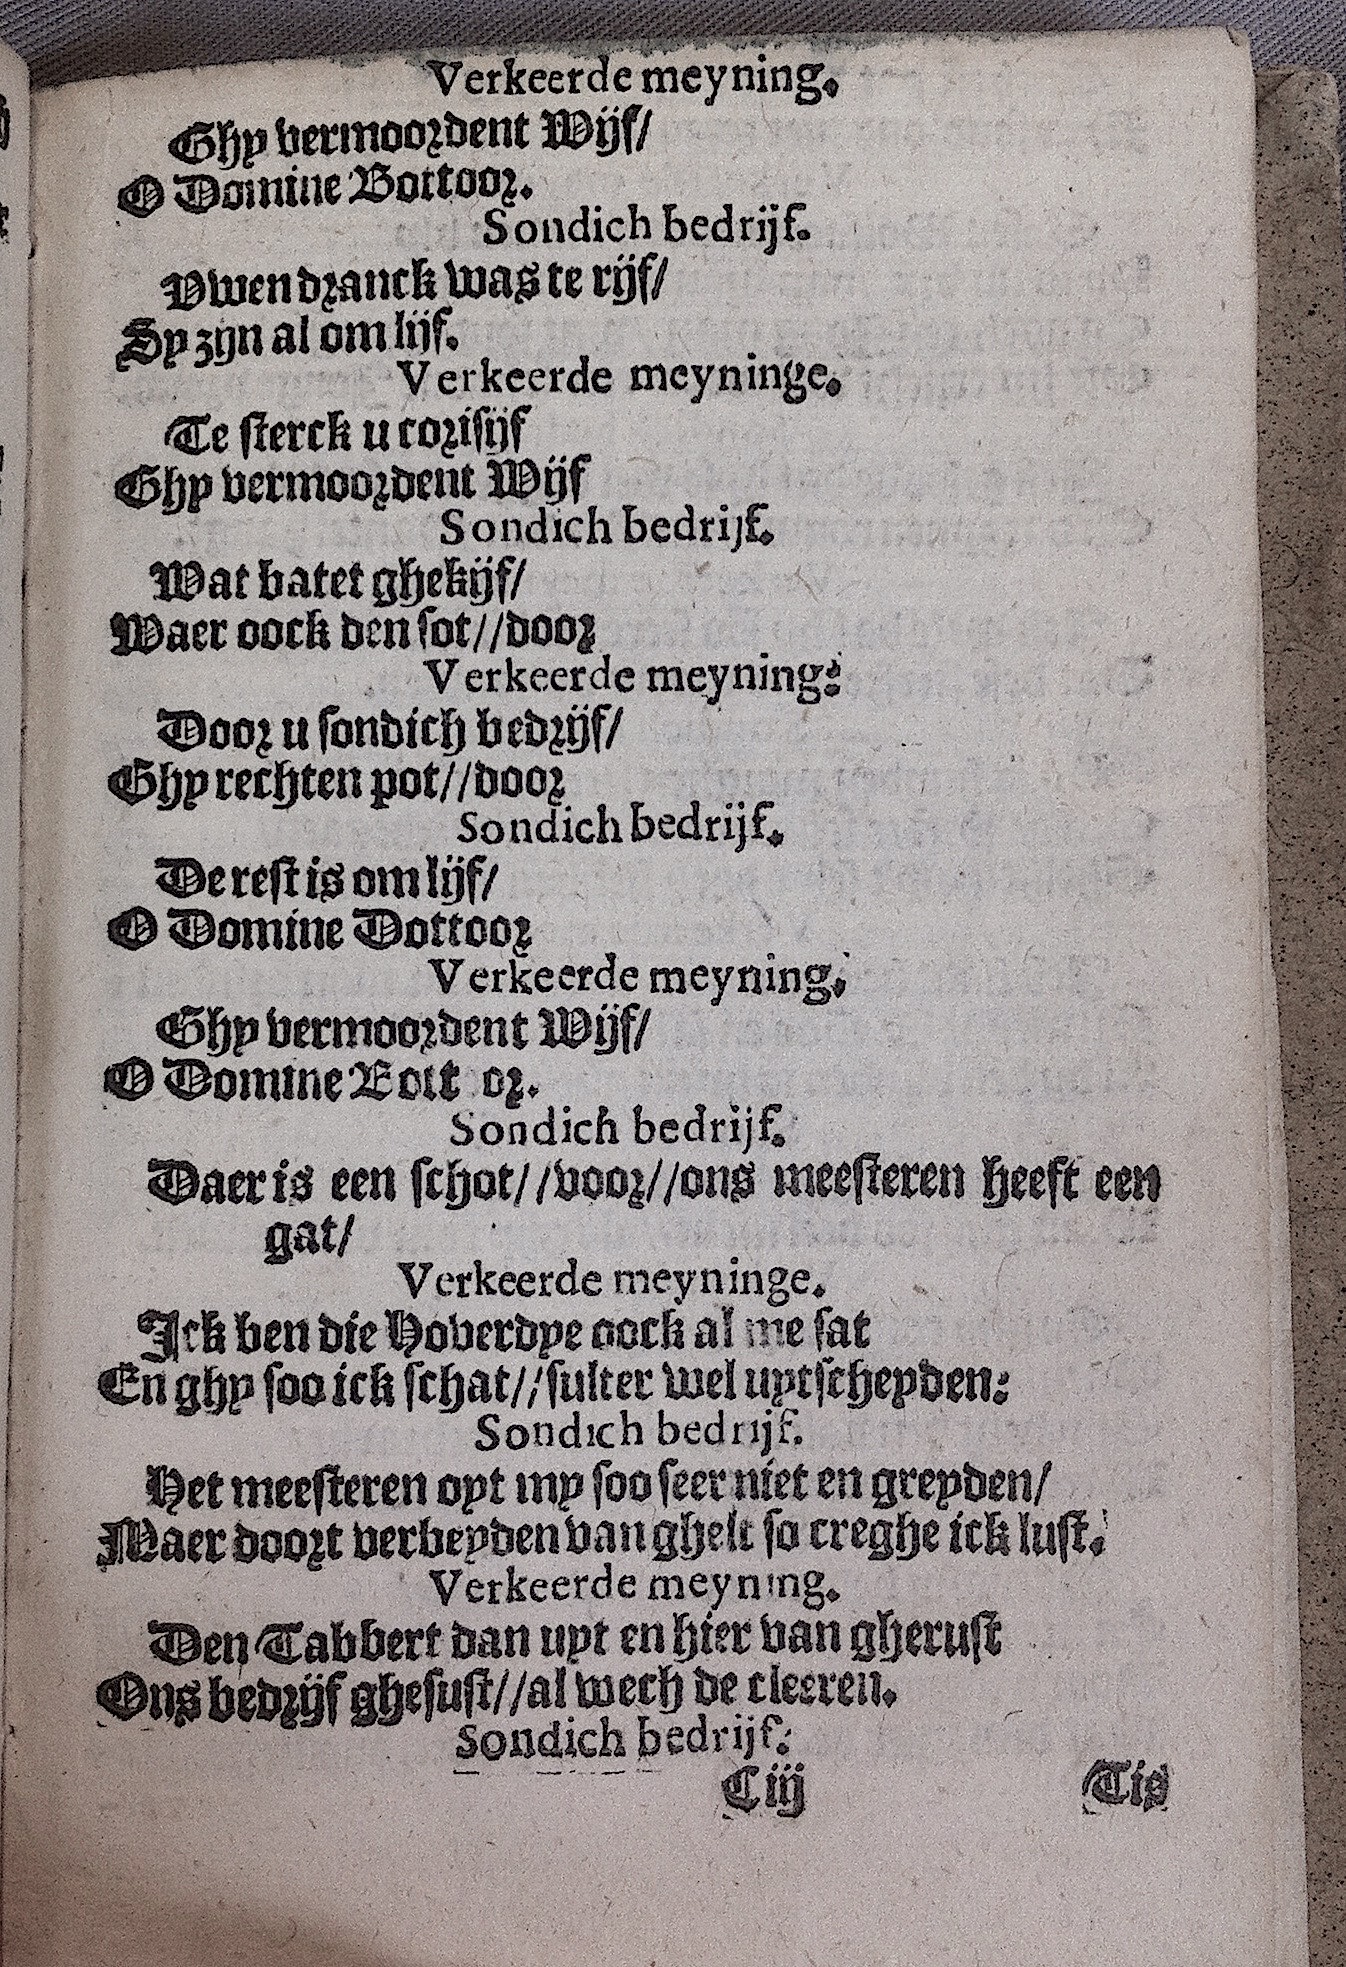 Verkeerde meyning.
Ghy vermoordent Wijf/
O Domine Bottoor.
Sondich bedrijf.
Vwen dranck was te rijf/
Sy zijn al om lijf.
Verkeerde meyninge.
Te sterck u corisijf
Ghy vermoordent Wijf
Sondich bedrijf.
Wat batet ghekijf/
Waer oock den sot//door
Verkeerde meyning:
Door u sondich bedrijf/
Ghy rechten pot//door
Sondich bedrijf.
De rest is om lijf/
O Domine Dottoor
Verkeerde meyning.
Ghy vermoordent Wijf/
O Domine
Sondich bedrijf.
Daer is een schot//voor//ons meesteren heeft een
gat/
Verkeerde meyninge.
Ick ben die Hoverdye oock al me sat
En ghy soo ick schat//sulter wel uytscheyden:
Sondich bedrijf.
Het meesteren oyt my soo seer niet en greyden/
Maer doort verbeyden van ghelt so creghe ick lust.
Verkeerde meyning.
Den Tabbert dan uyt en hier van gherust
Ons bedrijf ghesust//al wech de cleeren.
Sondich bedrijf:
Ciij Tis